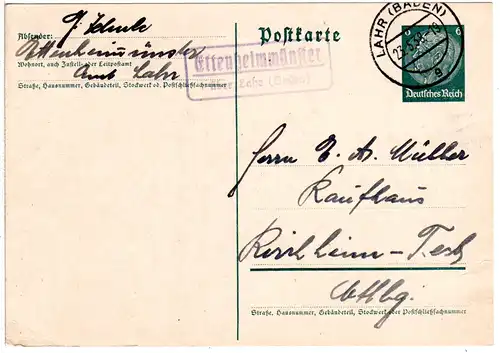 Absender:
Ettenheimmünster
Wohnort, auch Zustell- oder Leitpostamt
Amt Lahr
Straße, Hausnummer, Gebäudeteil, Stockwerk od. Postschließfachnummer
Ettenheimmünster
über Lahr (Baden)
Postkarte
LAHR (BADEN)
6 6
Deutsches Reich
Herrn E. A. Müller
Kaufhaus
Kirchheim-Teck
Wttbg.
Straße, Hausnummer, Gebäudeteil, Stockwerk oder Postschließfachnummer